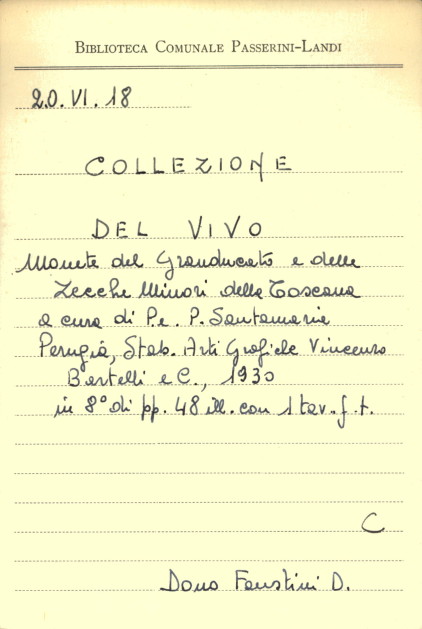 BIBLIOTECA COMUNALE PASSERINI-LANDI
20.VI.18
COLLEZIONE
DEL VIVO
Monete del Granducato e delle
Zecche Minori della Toscana
a cura di P. e. P. Santamaria
Perugia, Stab. Arti Grafiche Vincenzo
Bartelli e C., 1930
in 8° di pp. 48 ill. con 1 tav. f. t.
C
Dono Faustini D.